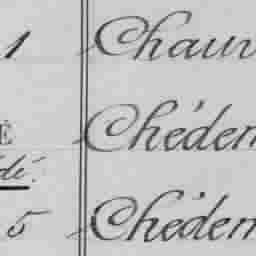 1 Chauv
É Chédem
dé.
5 Chédem